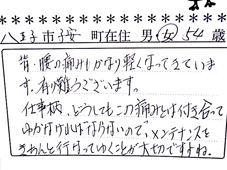 八王子市 町在住 男 女 54 歳
背・腰の痛みがかなり軽くなってきていま
す。有り難うございます。
仕事柄、どうしてもこの痛みとは付き合って
ゆかなければならないので、メンテナンスを
きちんと行なってゆくことが大切ですね。